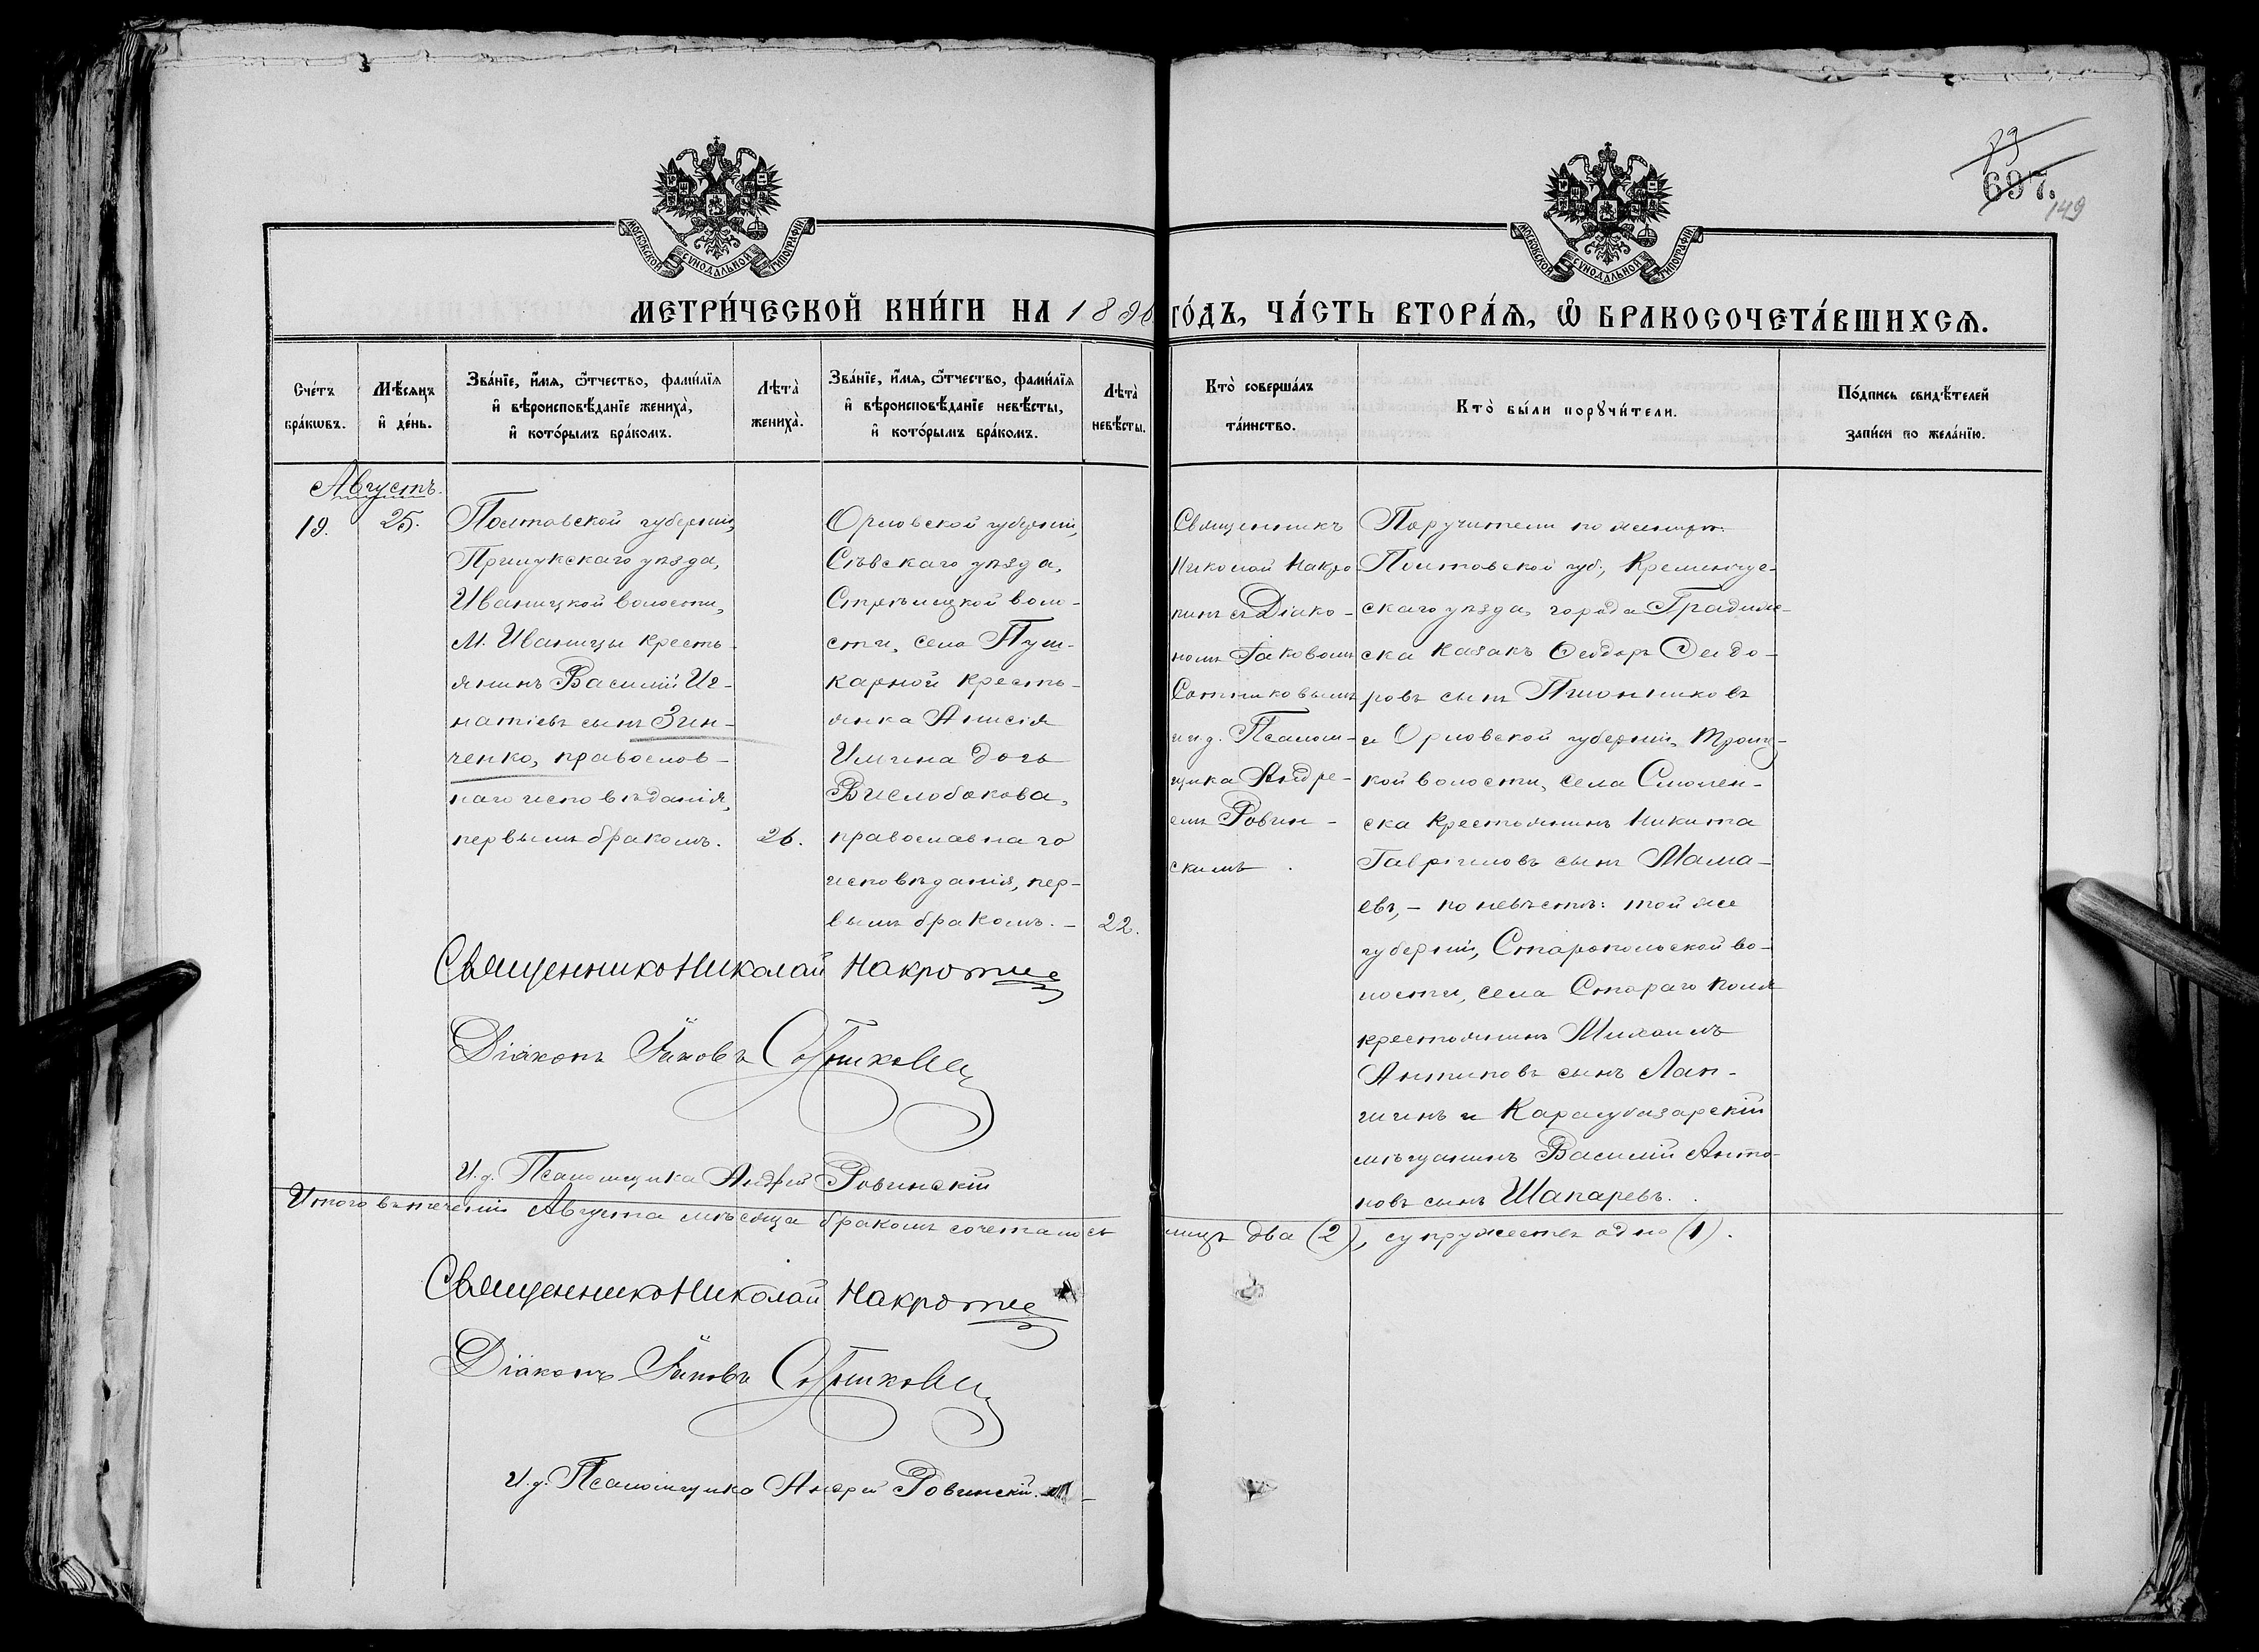 39
697.
149
МОСКОВСКОЙ СѴНОДАЛЬНОЙ ТИПОГРАФІИ
МОСКОВСКОЙ СѴНОДАЛЬНОЙ ТИПОГРАФІИ
МЕТРИ́ЧЕСКОЙ КНИ́ГИ НА 1890 ГО́ДЪ, ЧА́СТЬ ВТОРА́Я, Ѽ БРАКОСОЧЕТА́ВШИХСЯ.
Сче́тъ
бра́кѡвъ.
Мѣ́сяцъ
и҆ де́нь.
Зва́нїе, и҆́мя, ѻ҆́тчество, фами́лїя
и҆ вѣроисповѣ́данїе жениха̀,
и҆ кото́рымъ бра́комъ.
Лѣта̀
жениха̀.
Зва́нїе, и҆́мя, ѻ҆́тчество, фами́лїя
и҆ вѣроисповѣ́данїе невѣ́сты,
и҆ кото́рымъ бра́комъ.
Лѣта̀
невѣ́сты.
Кто̀ соверша́лъ
та́инство.
Кто̀ бы́ли порꙋчи́тели.
По́дпись свидѣ́телей
за́писи по жела́нїю.
Августъ.
19.
25.
Полтавской губерніи,
Прилукскаго уѣзда,
Иваницкой волости,
М. Иваницы кресть-
янинъ Василій Иг-
натіевъ сынъ Зин-
ченко, православ-
наго исповѣданія,
первымъ бракомъ.
26.
Орловской губерніи,
Сѣвскаго уѣзда,
Стрѣлецкой воло-
сти, села Пуш-
карной кресть-
янка Анисія
Ильина дочь
Вислобокова,
православнаго
исповѣданія, пер-
вымъ бракомъ. –
22.
Священникъ
Николай Накро-
пинъ съ Діако-
номъ Іаковомъ
Сотниковымъ
и и. д. Псалом-
щика Андре-
емъ Ровин-
скимъ.
Поручители по женихѣ:
Полтавской губ., Кременчуг-
скаго уѣзда, города Градиж-
ска казакъ Ѳеодоръ Ѳеодо-
ровъ сынъ
и Орловской губерніи, Троиц-
кой волости, села Смолен-
ска крестьянинъ Никита
Гавріиловъ сынъ Мама-
евъ, – по невѣстѣ: той же
губерніи, Старопольской во-
лости, села Стараго поля
крестьянинъ Михаилъ
Антиповъ сынъ Лап-
шинъ и Карасубазарскій
мѣщанинъ Василій Анто-
новъ сынъ Шапаревъ.
Священникъ Николай
Діаконъ Іаковъ Сотниковъ
И. д. Псаломщика Андрей Ровинскій
Итого въ теченіи Августа мѣсяца бракомъ сочеталось лицъ два (2), супружествъ одно (1).
Священникъ Николай
Діаконъ Іаковъ Сотниковъ
И. д. Псаломщика Андрей Ровинскій.